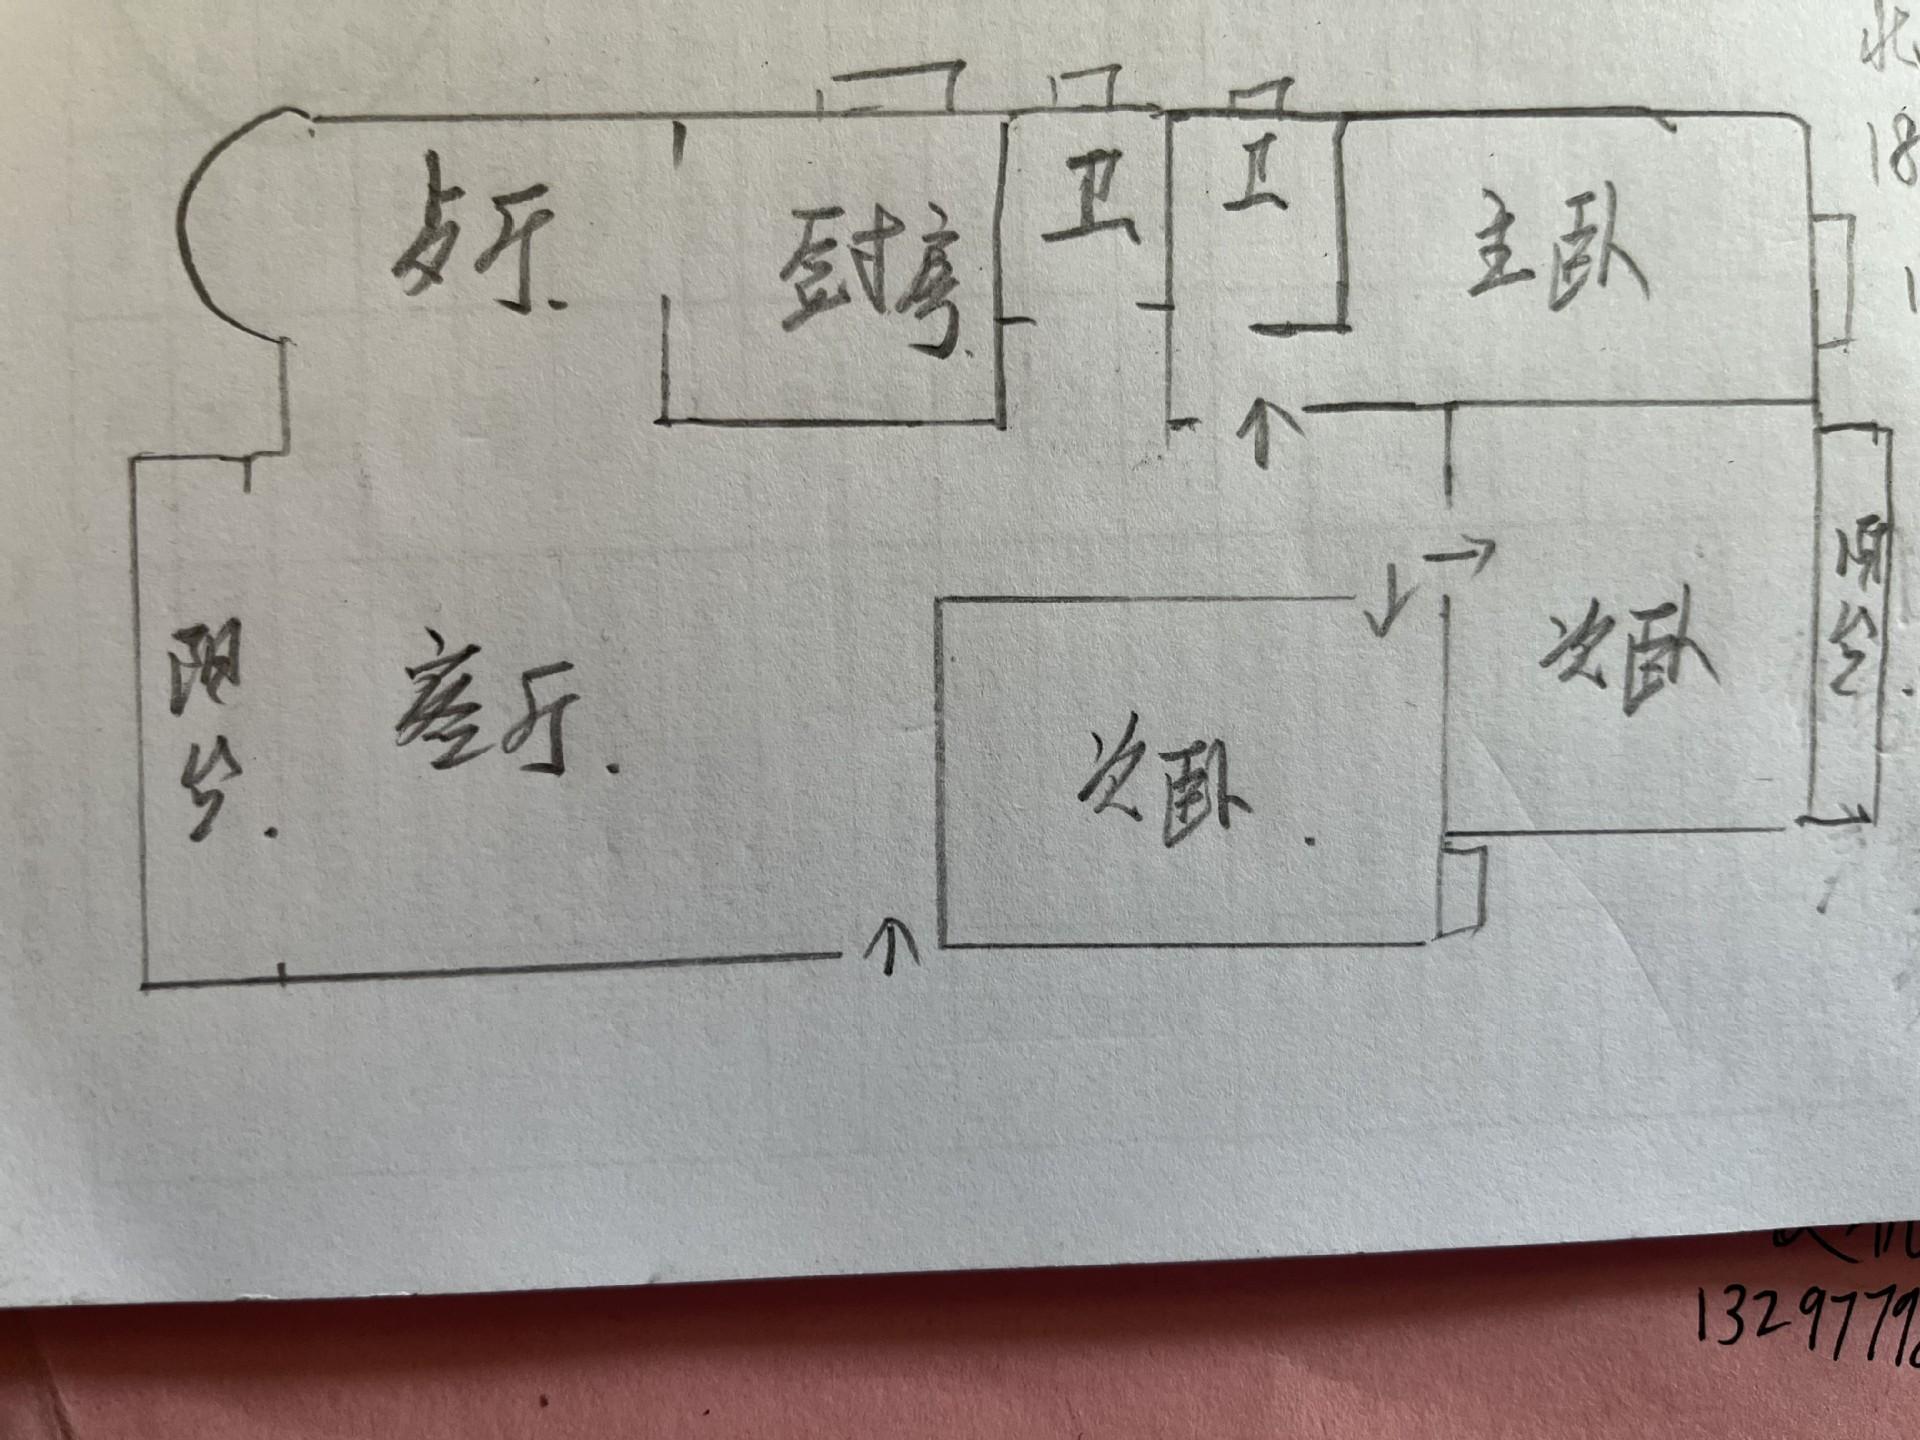 北
18
1
歺厅.
厨房.
卫
卫
主卧
阳台.
客厅.
次卧.
次卧
阳台.
1329779